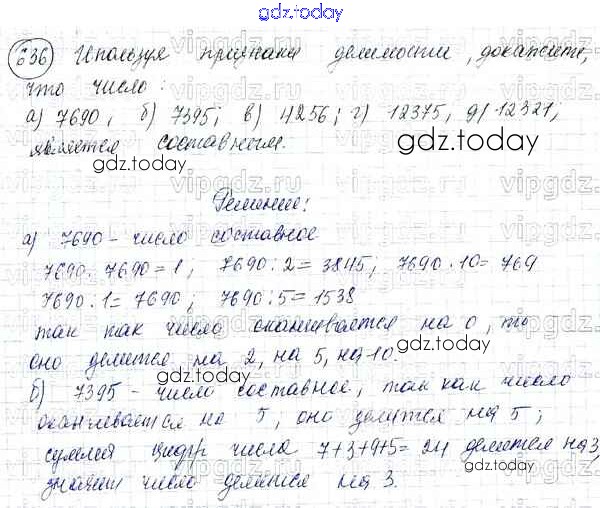 gdz.today
636 Используя признаки делимости, докажите,
что число:
а) 7690; б) 7395; в) 4256; г) 12375, д) 12321;
является составным.
gdz.today
gdz.today
Решение:
а) 7690 - число составное
7690 : 7690 = 1; 7690 : 2 = 3845; 7690 : 10 = 769
7690 : 1 = 7690; 7690 : 5 = 1538
так как число оканчивается на 0, то
оно делится на 2, на 5, на 10.
gdz.today
б) 7395 - число составное, так как число
оканчивается на 5, оно делится на 5;
сумма цифр числа 7+3+9+5 = 24 делится на 3,
значит число делится на 3.
gdz.today